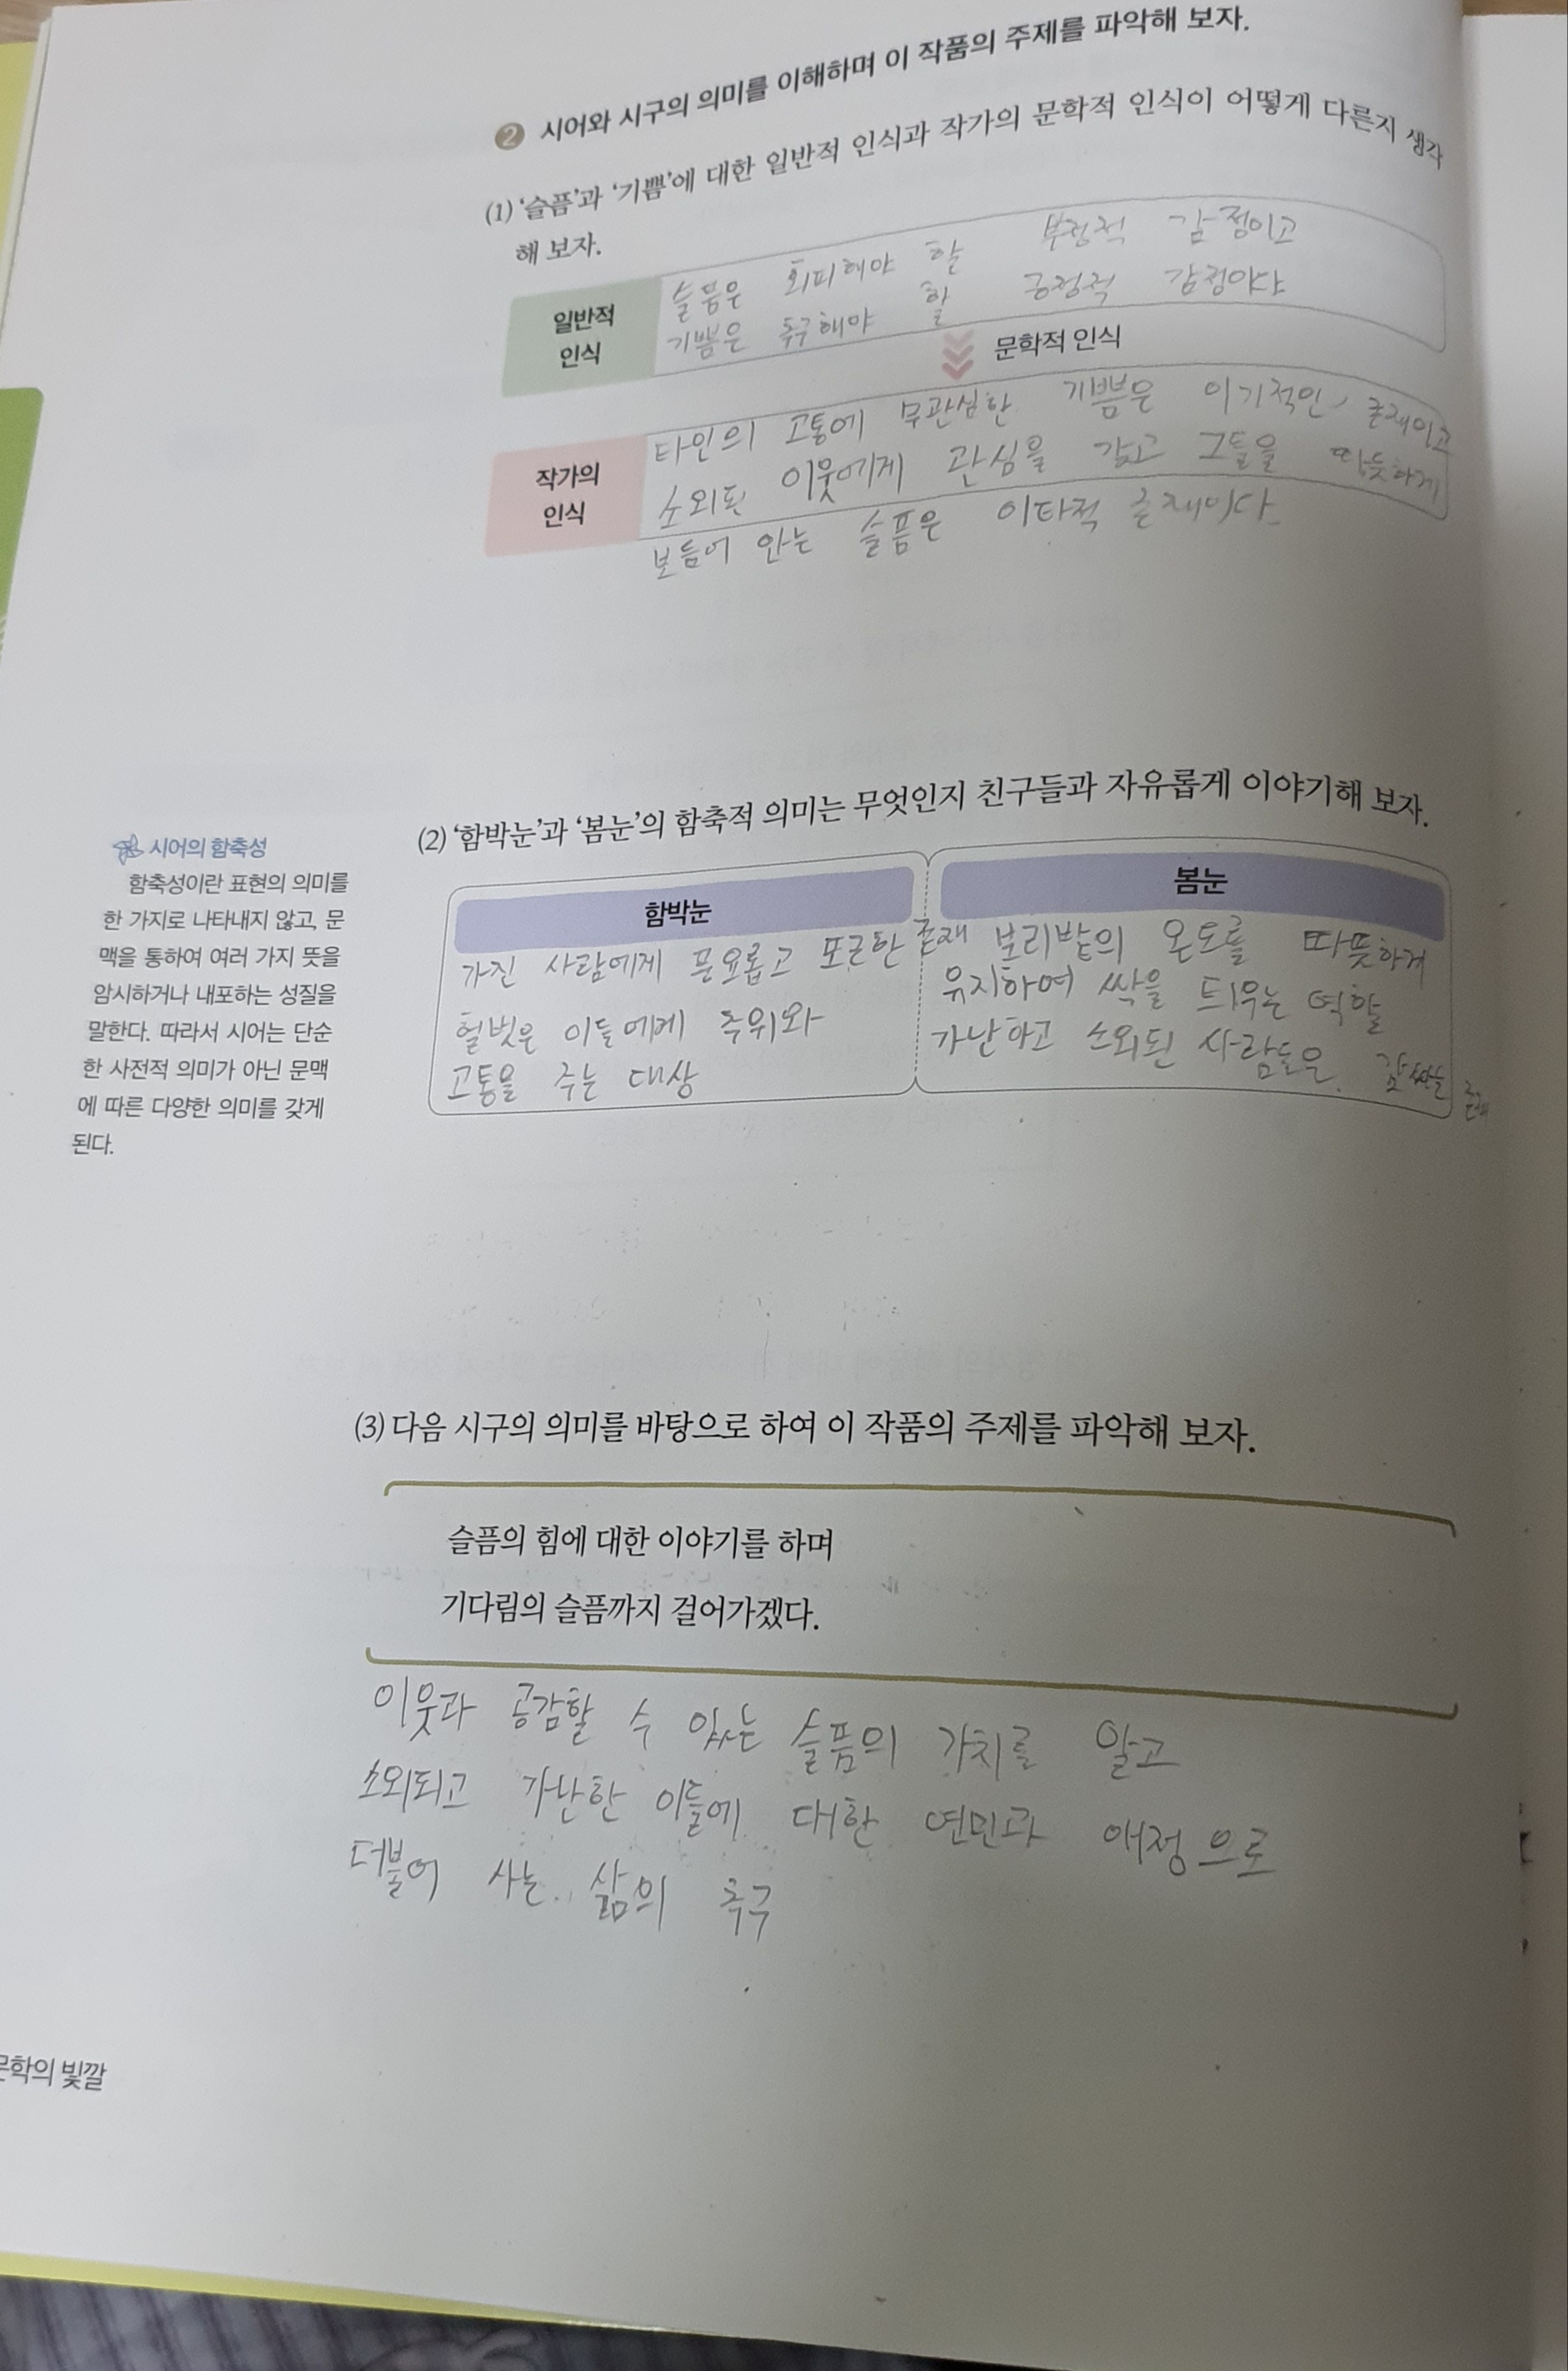 ❷ 시어와 시구의 의미를 이해하며 이 작품의 주제를 파악해 보자.
(1) '슬픔'과 '기쁨'에 대한 일반적 인식과 작가의 문학적 인식이 어떻게 다른지 생각
해 보자.
일반적
인식
슬픔은 회피해야 할 부정적 감정이고
기쁨은 추구해야 할 긍정적 감정이다
문학적 인식
작가의
인식
타인의 고통에 무관심한 기쁨은 이기적인 존재이고
소외된 이웃에게 관심을 갖고 그들을 따듯하게
보듬어 안는 슬픔은 이타적 존재이다
(2) '함박눈'과 '봄눈'의 함축적 의미는 무엇인지 친구들과 자유롭게 이야기해 보자.
함박눈
가진 사람에게 풍요롭고 포근한 존재
헐벗은 이들에게 추위와
고통을 주는 대상
봄눈
보리밭의 온도를 따뜻하게
유지하여 싹을 틔우는 역할
가난하고 소외된 사람들을 감싸는 존재
시어의 함축성
함축성이란 표현의 의미를
한 가지로 나타내지 않고, 문
맥을 통하여 여러 가지 뜻을
암시하거나 내포하는 성질을
말한다. 따라서 시어는 단순
한 사전적 의미가 아닌 문맥
에 따른 다양한 의미를 갖게
된다.
(3) 다음 시구의 의미를 바탕으로 하여 이 작품의 주제를 파악해 보자.
슬픔의 힘에 대한 이야기를 하며
기다림의 슬픔까지 걸어가겠다.
이웃과 공감할 수 있는 슬픔의 가치를 알고
소외되고 가난한 이들에 대한 연민과 애정으로
더불어 사는 삶의 추구
문학의 빛깔